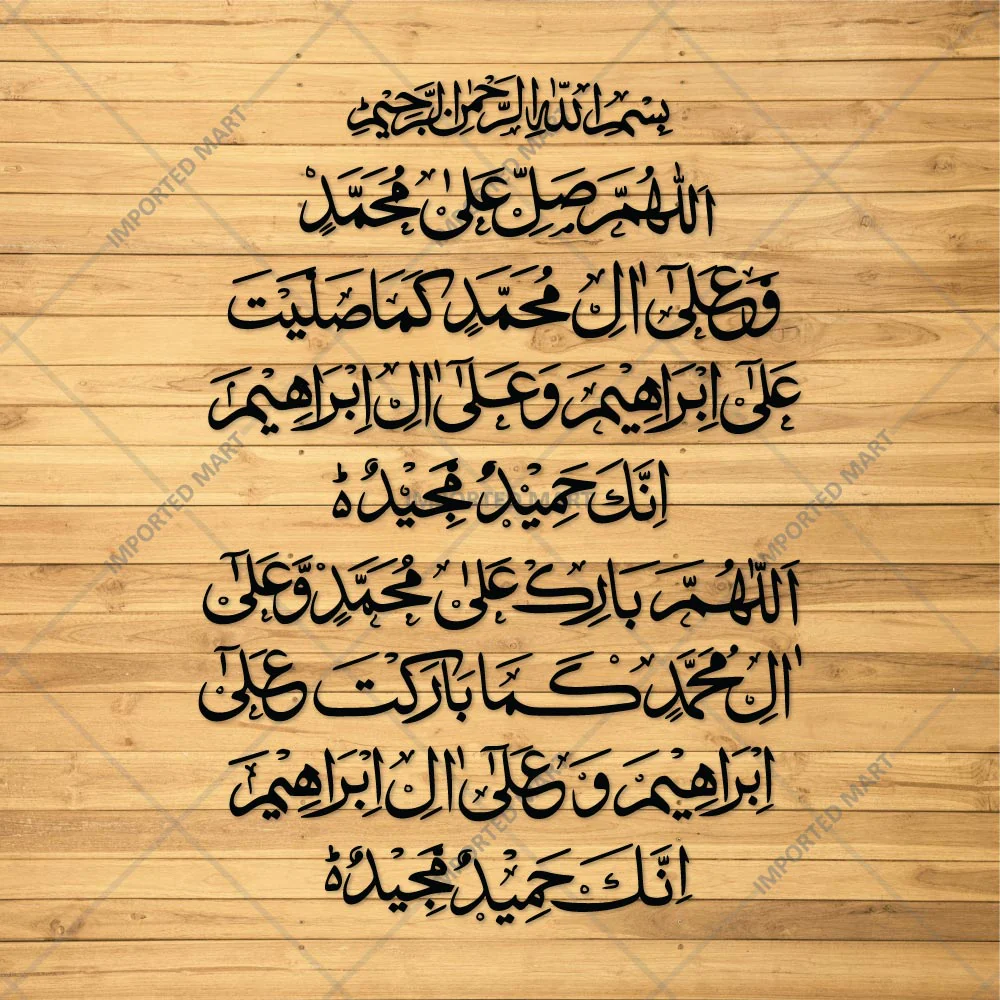 بِسْمِ اللّٰهِ الرَّحْمٰنِ الرَّحِيْمِ
اَللّٰهُمَّ صَلِّ عَلٰى مُحَمَّدٍ
وَّعَلٰٓى اٰلِ مُحَمَّدٍ كَمَا صَلَّيْتَ
عَلٰٓى اِبْرَاهِيْمَ وَعَلٰٓى اٰلِ اِبْرَاهِيْمَ
اِنَّكَ حَمِيْدٌ مَّجِيْدٌ ؕ
اَللّٰهُمَّ بَارِكْ عَلٰى مُحَمَّدٍ وَّعَلٰٓى
اٰلِ مُحَمَّدٍ كَمَا بَارَكْتَ عَلٰٓى
اِبْرَاهِيْمَ وَعَلٰٓى اٰلِ اِبْرَاهِيْمَ
اِنَّكَ حَمِيْدٌ مَّجِيْدٌ ؕ
IMPORTED MART
IMPORTED MART
IMPORTED MART
IMPORTED MART
IMPORTED MART
IMPORTED MART
IMPORTED MART